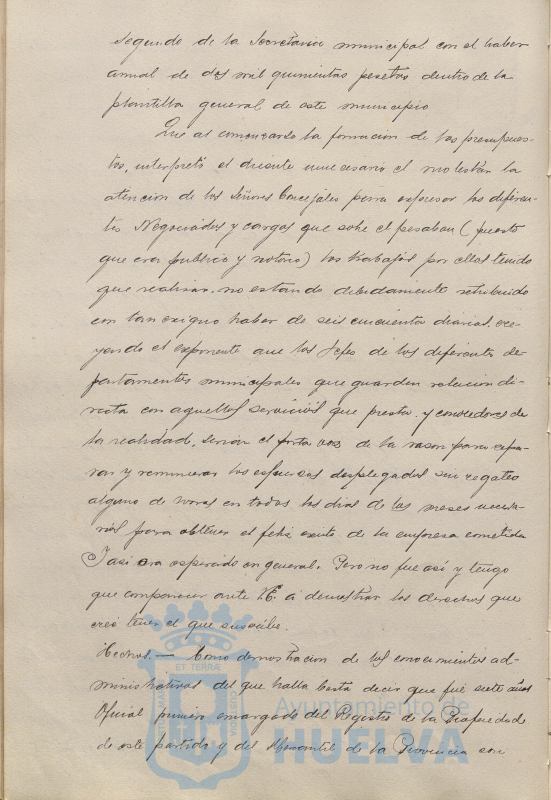 segundo de la Secretaria municipal con el haber
anual de dos mil quinientas pesetas dentro de la
plantilla general de este municipio
Que al comenzarse la formacion de los presupues-
tos, interpretó el disente innecesario el molestar la
atencion de los Señores Concejales para expresar los diferen-
tes Negociados y cargos que sobre el pesaban (puesto
que era publico y notorio) los trabajos por ellos tenido
que realizar, no estando debidamente retribuido
con tan exiguo haber de seis cincuenta diarias, cre-
yendo el exponente que los Jefes de los diferentes de-
partamentos municipales que guardan relacion di-
recta con aquellos servicios que presta y conocedores de
la realidad, serian el porta voz de la razon para
y remunerar los esfuerzos desplegados sin regateo
alguno de horas en todos los dias de los meses necesa-
rios para obtener el feliz exito de la empresa cometida
I asi era esperado en general. Pero no fue asi y tengo
que comparecer ante V.E. á demostrar los derechos que
creo tener el que suscribe.
Hechos. — Como demostracion de los conocimientos ad-
ministrativos del que habla basta decir que fué siete años
Oficial primero encargado del Registro de la Propiedad
de este partido y del Mercantil de la Provincia con
ET TERRÆ
CUSTODIA
Ayuntamiento de
HUELVA